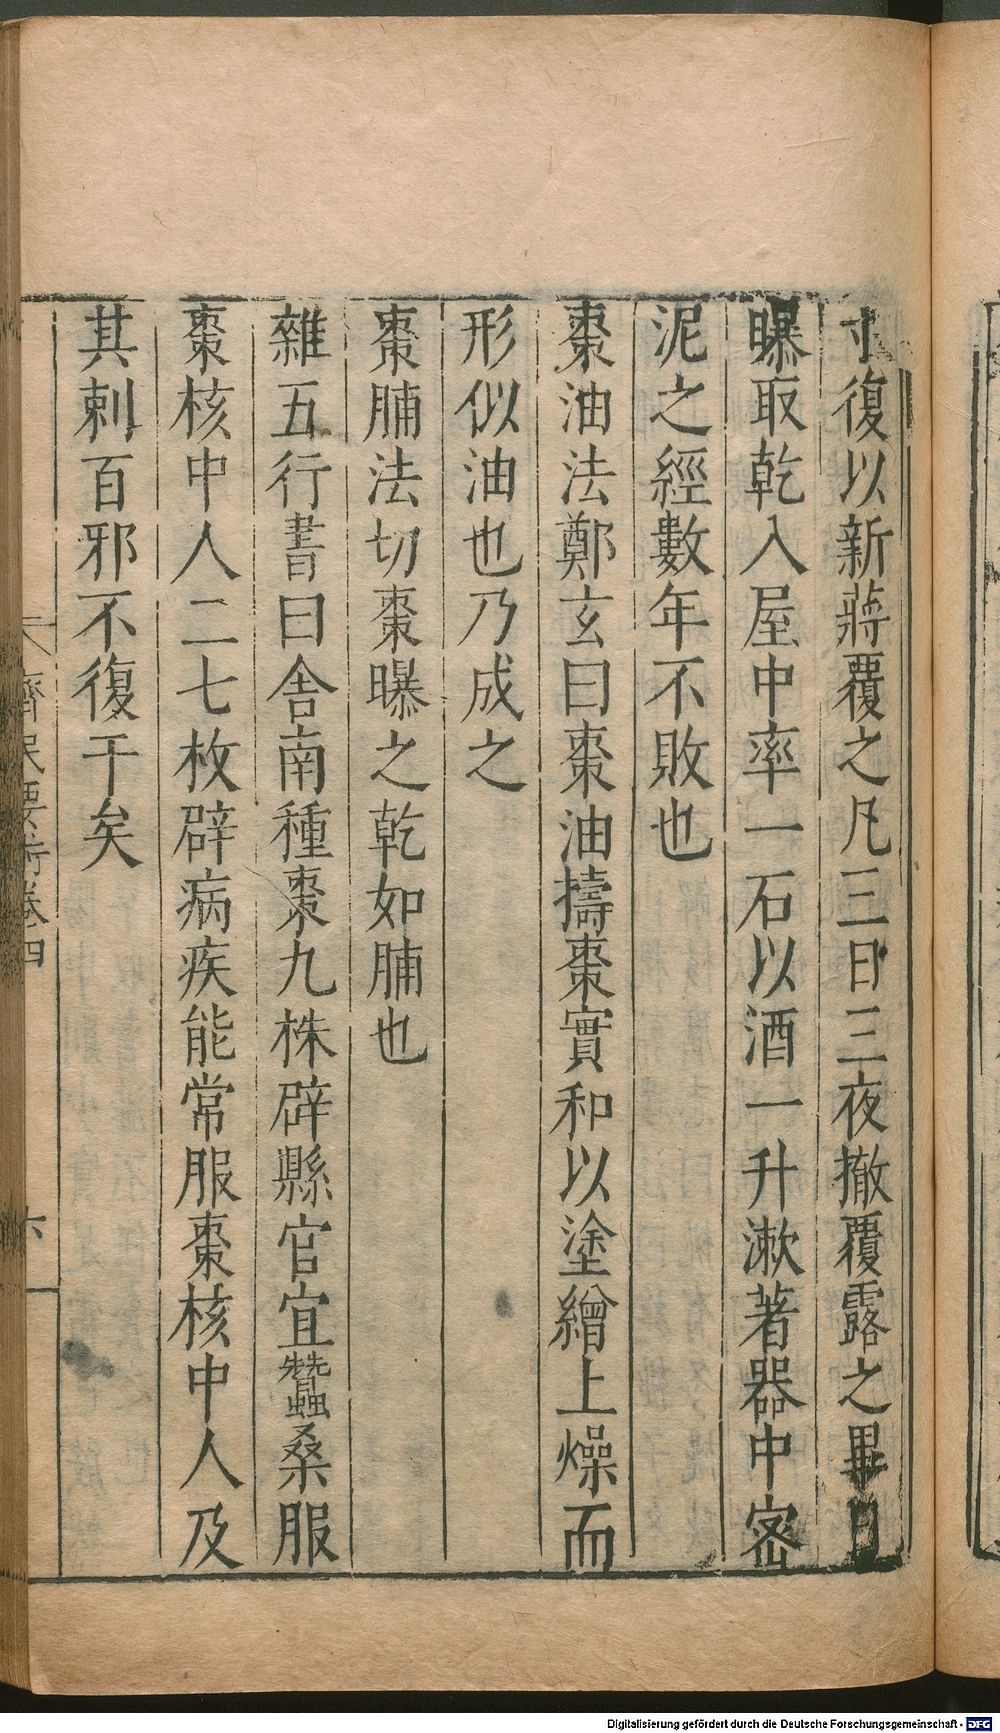 寸復以新蔣覆之凡三日三夜撤覆露之畢日
曝取乾入屋中率一石以酒一升漱著器中密
泥之經數年不敗也
棗油法鄭玄曰棗油擣棗實和以塗繒上燥而
形似油也乃成之
棗脯法切棗曝之乾如脯也
雜五行書曰舍南種棗九株辟縣官宜蠶桑服
棗核中人二七枚辟病疾能常服棗核中人及
其刺百邪不復干矣
齊民要術卷四
六
Digitalisierung gefördert durch die Deutsche Forschungsgemeinschaft - DFG